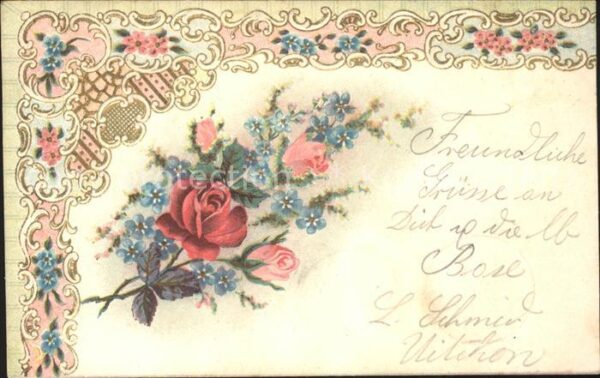 Freundliche
Grüsse an
Dich u die lb
Base
L. Schmid